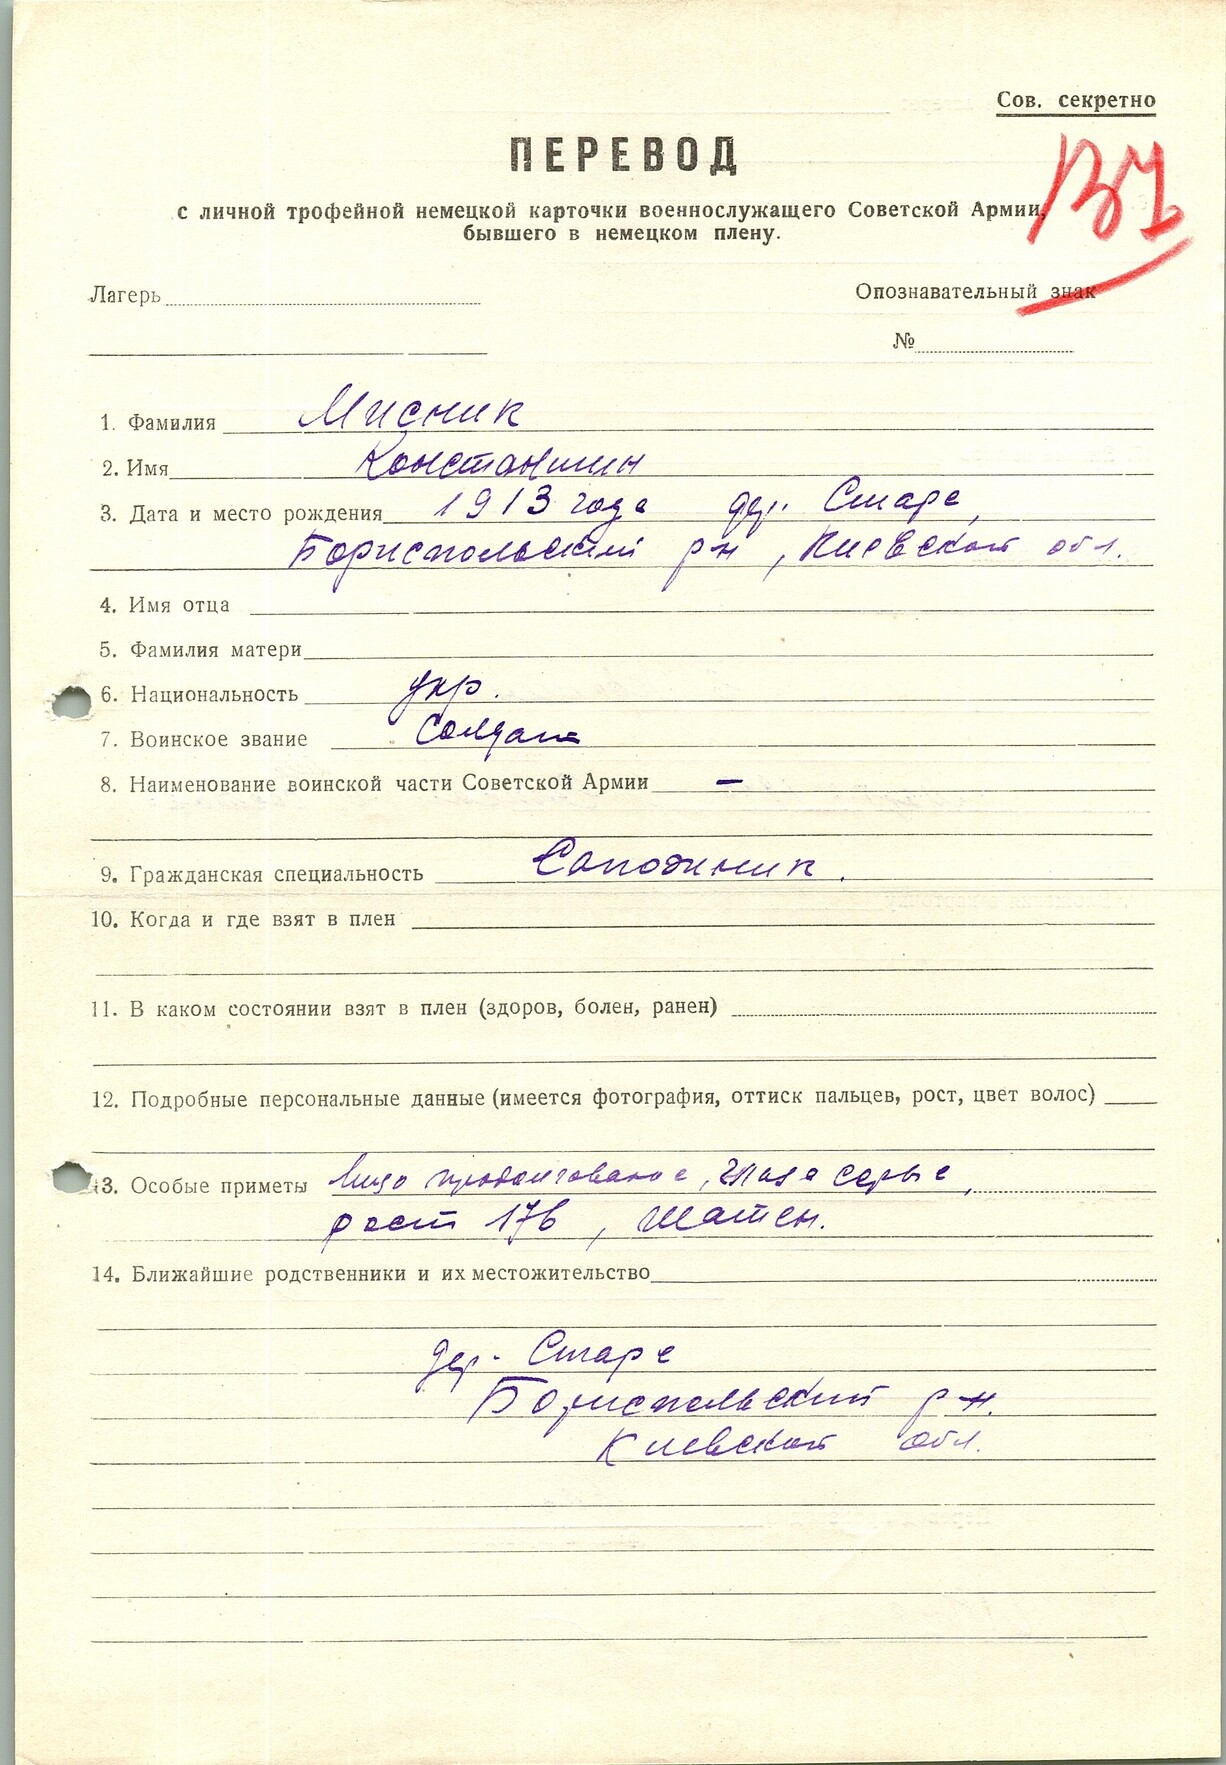 Сов. секретно
ПЕРЕВОД
с личной трофейной немецкой карточки военнослужащего Советской Армии,
бывшего в немецком плену.
Лагерь Опознавательный знак
№
1. Фамилия Мисник
2. Имя Константин
3. Дата и место рождения 1913 года дер. Старе,
Бориспольский р-н, Киевской обл.
4. Имя отца
5. Фамилия матери
6. Национальность укр.
7. Воинское звание Солдат
8. Наименование воинской части Советской Армии —
9. Гражданская специальность Сапожник.
10. Когда и где взят в плен
11. В каком состоянии взят в плен (здоров, болен, ранен)
12. Подробные персональные данные (имеется фотография, оттиск пальцев, рост, цвет волос)
13. Особые приметы лицо продолговатое, глаза серые,
рост 176, шатен.
14. Ближайшие родственники и их местожительство
дер. Старе
Бориспольский р-н.
Киевской обл.